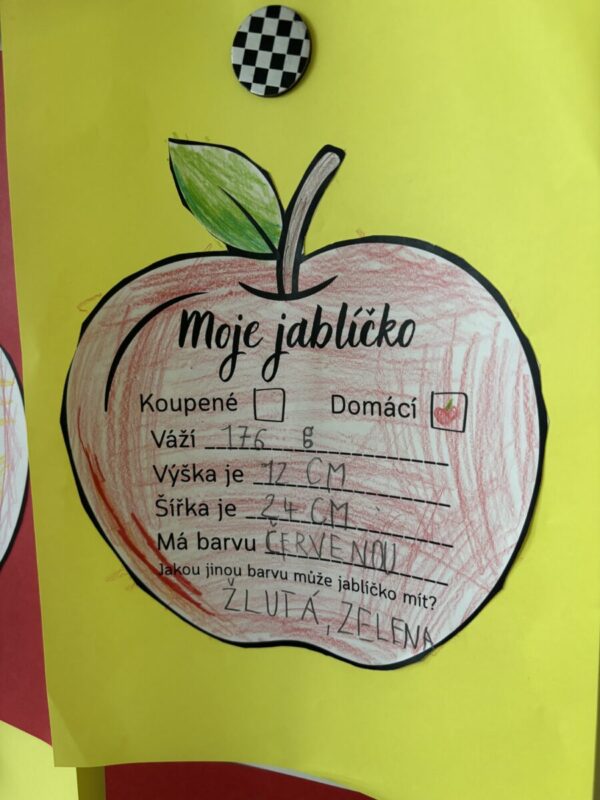 Moje jablíčko
Koupené Domácí
Váží 176 g
Výška je 12 CM
Šířka je 24 CM
Má barvu ČERVENOU
Jakou jinou barvu může jablíčko mít?
ŽLUTÁ, ZELENA